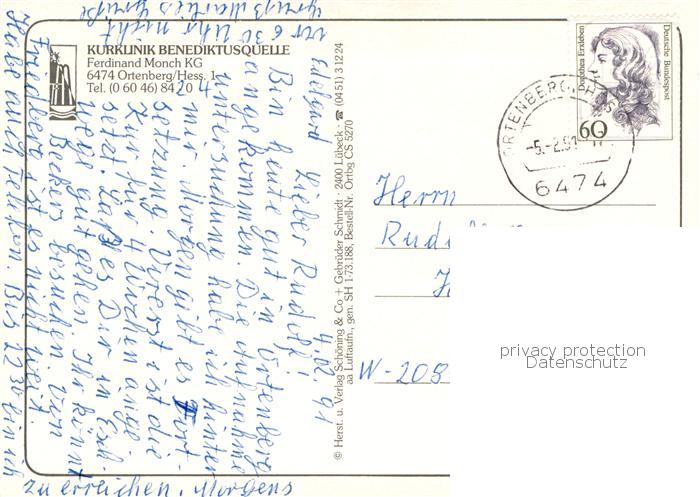 KURKLINIK BENEDIKTUSQUELLE
Ferdinand Monch KG
6474 Ortenberg/Hess. 1
Tel. (0 60 46) 84 20
4.02.91
Lieber Rudolf!
Bin heute gut in Ortenberg
angekommen. Die Aufnahme
untersuchung habe ich hinter
mir. Morgen gibt es Fort-
setzung. Vorerst ist die
Kur für 4 Wochen ange-
setzt. Laß es Dir in
weiter gut gehen. Ihr könnt
Beckers besuchen. Von
Friedberg ist es nicht weit
Habe auch Telefon. Bis 22 30 bin ich
zu erreichen, Morgens
vor 6 30 Uhr nicht
© Herst. u. Verlag Schöning & Co + Gebrüder Schmidt · 2400 Lübeck · ☎ (04 51) 3 12 24
aa Luftaufn., gen. SH 1-73.188, Bestell-Nr. Ortbg CS 5270
Dorothea Erxleben
Deutsche Bundespost
60
ORTENBERG, HESS
-5.-2.91
6474
Herrn
W-208
privacy protection
Datenschutz